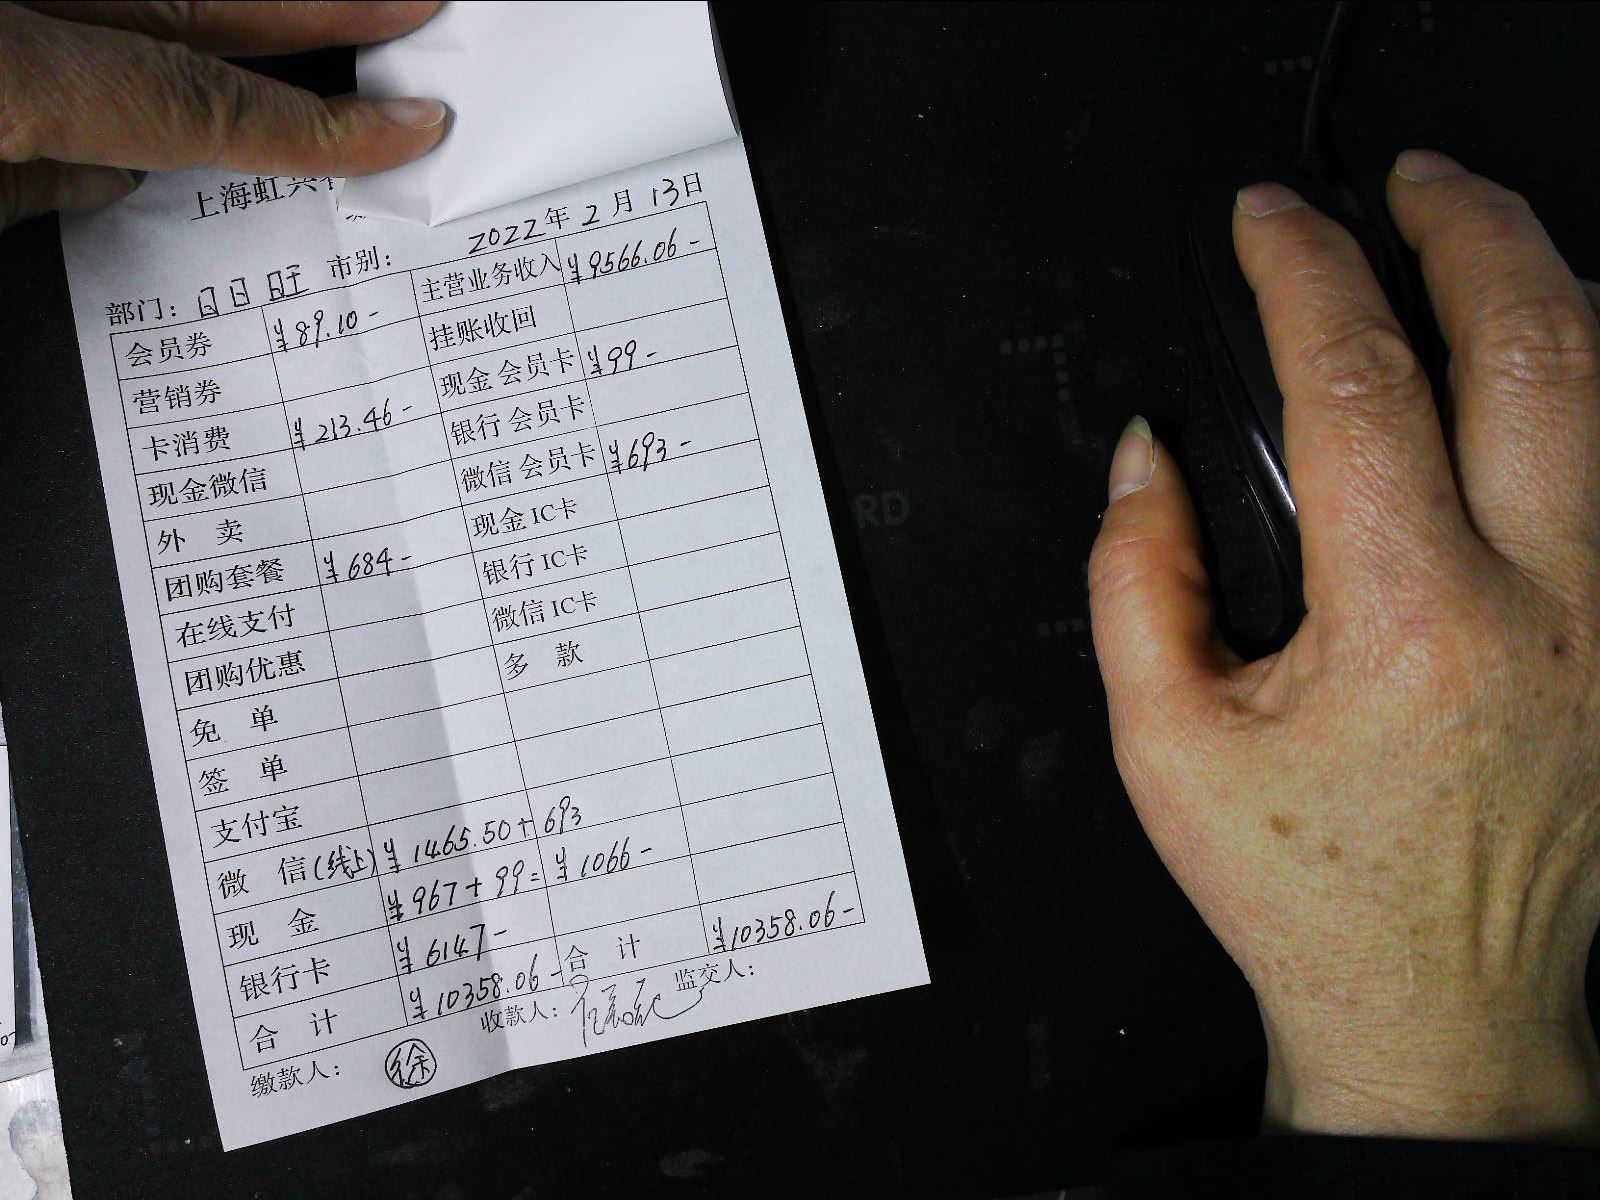 上海虹
2022年2月13日
部门：日日旺 市别：
会员券 ¥89.10- 主营业务收入 ¥9566.06-
营销券 挂账收回
卡消费 ¥213.46- 现金 会员卡 ¥99-
现金微信 银行 会员卡
外 卖 微信 会员卡 ¥693-
团购套餐 ¥684- 现金 IC卡
在线支付 银行 IC卡
团购优惠 微信 IC卡
免 单 多 款
签 单
支付宝
微 信(线上) ¥1465.50+693
现 金 ¥967+99=¥1066-
银行卡 ¥6147-
合 计 ¥10358.06- 合 计 ¥10358.06-
缴款人： 徐 收款人： 监交人：
RD